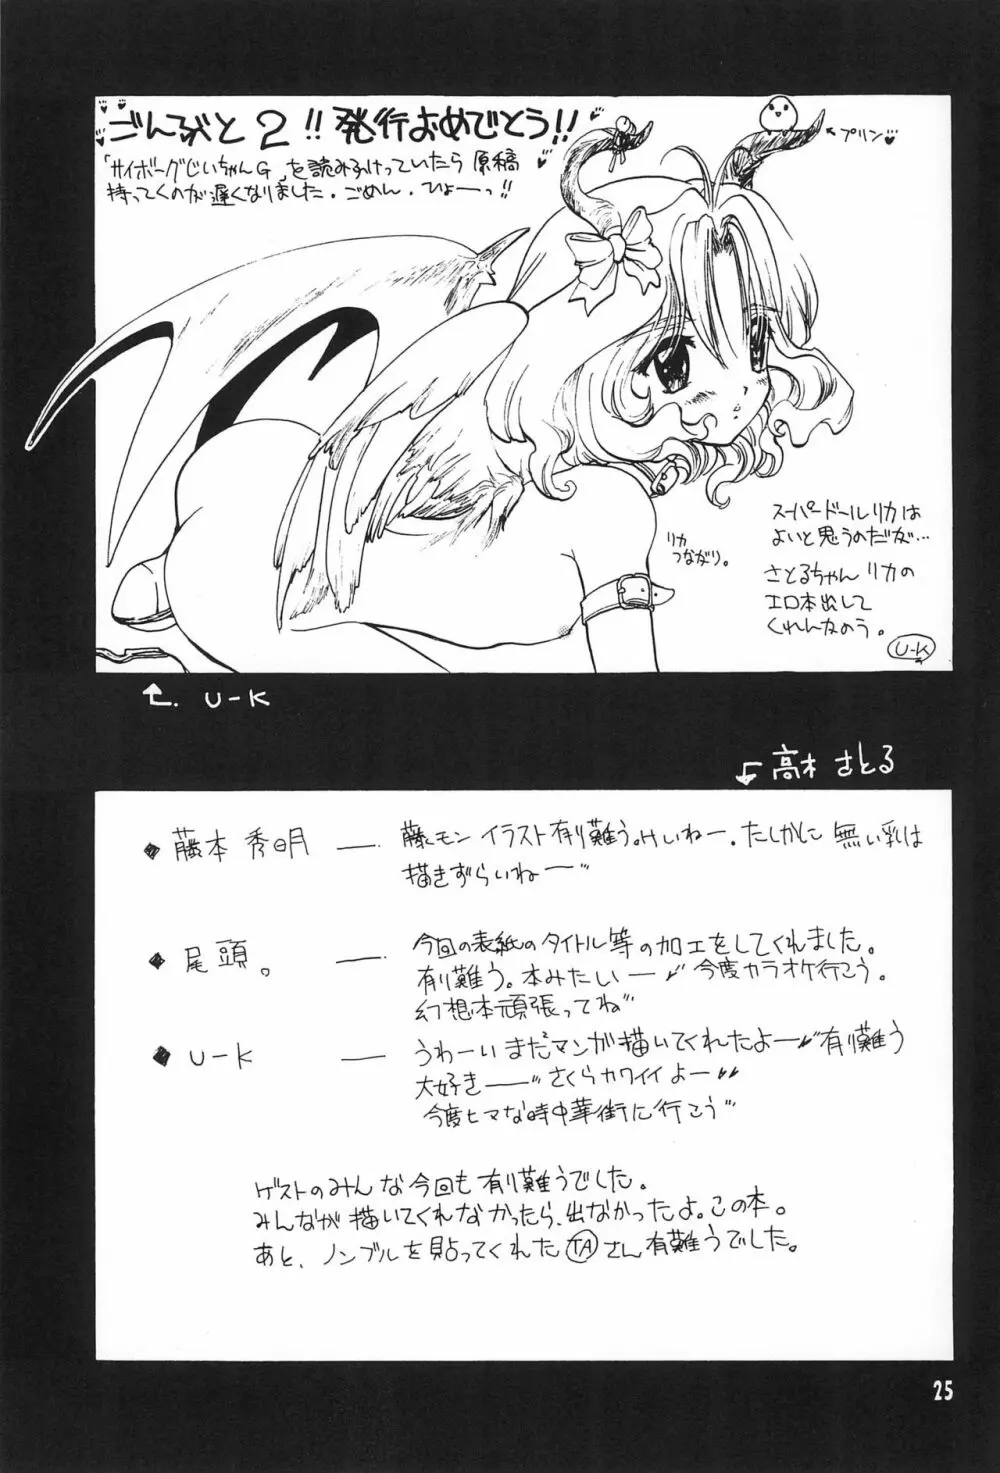 ごんぶと2!! 発行おめでとう!!
「サイボーグじいちゃんG」を読みふけっていたら 原稿
持ってくのが遅くなりました。ごめん。ひょーっ!!
プリン
リカ
つながり。
スーパードールリカは
よいと思うのだが…
さとるちゃん リカの
エロ本出して
くれんかのう。
U-K
U-K
高木 さとる
◆ 藤本 秀明 ―― 藤モン イラスト有り難う。けいねー。たしかに 無い乳は
描きずらいねー
◆ 尾頭。 ―― 今回の表紙のタイトル等の加工をしてくれました。
有り難う。本みたいー 今度カラオケ行こう。
幻想本頑張ってね
◆ U-K ―― うわーい まだマンガ描いてくれたよー 有り難う
大好きー さくらカワイイよー
今度ヒマな時中華街に行こう
ゲストのみんな今回も有り難うでした。
みんなが描いてくれなかったら、出なかったよ。この本。
あと、ノンブルを貼ってくれた TA さん有難うでした。
25